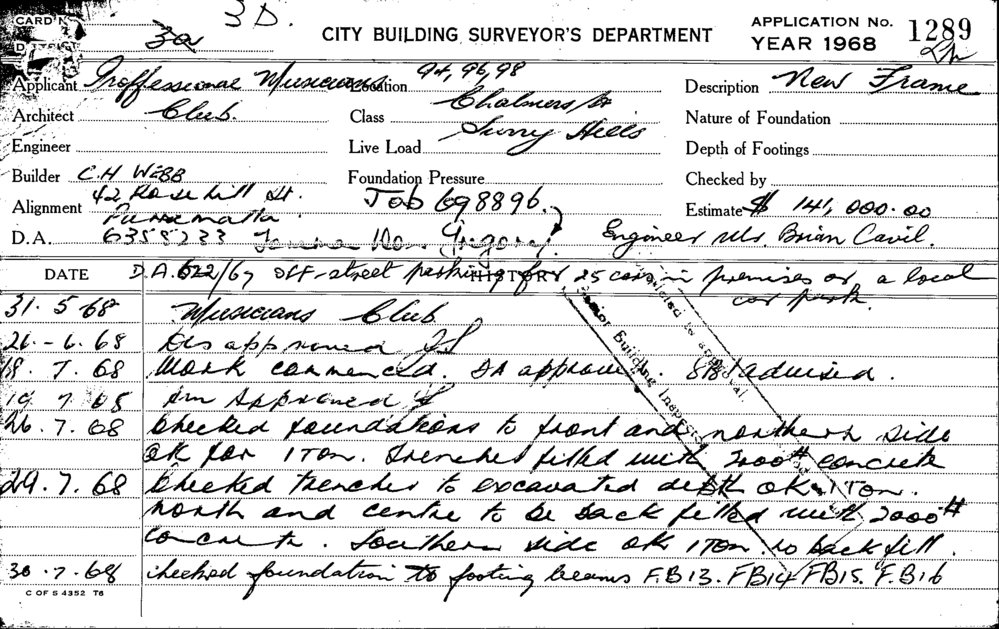 CARD No. 3D.
DISTRICT 3a
CITY BUILDING SURVEYOR'S DEPARTMENT
APPLICATION No. 1289
YEAR 1968
Applicant Proffessional Musicians Location 94, 96, 98 Description New Frame
Architect Club. Class Chalmers St Nature of Foundation
Engineer Live Load Surry Hills Depth of Footings
Builder C.H WEBB Foundation Pressure Checked by
Alignment 42 Rosehill St. Job 698896. Estimate $ 141,000.00
Parramatta
D.A. 6358233 Don Gregory Engineer Mr. Brian Cavil.
DATE HISTORY D.A. 622/67 off-street parking for 25 cars in premises or a local
car park
31.5.68 Musicians Club
26.-6.68 Dis approved
18.7.68 Work commenced. DA approved. SBI advised.
19.7.68 Am Approved
26.7.68 Checked foundations to front and northern side
OK for 1 Ton. Trenches filled with 2000# concrete
29.7.68 Checked trenches to excavated depth OK 1 Ton.
North and centre to be back filled with 2000#
concrete. Southern side ok 1 Ton to back fill.
30.7.68 checked foundation to footing beams F.B13. FB14 FB15. F.B16
Senior Building Inspector
C OF S 4352 T6